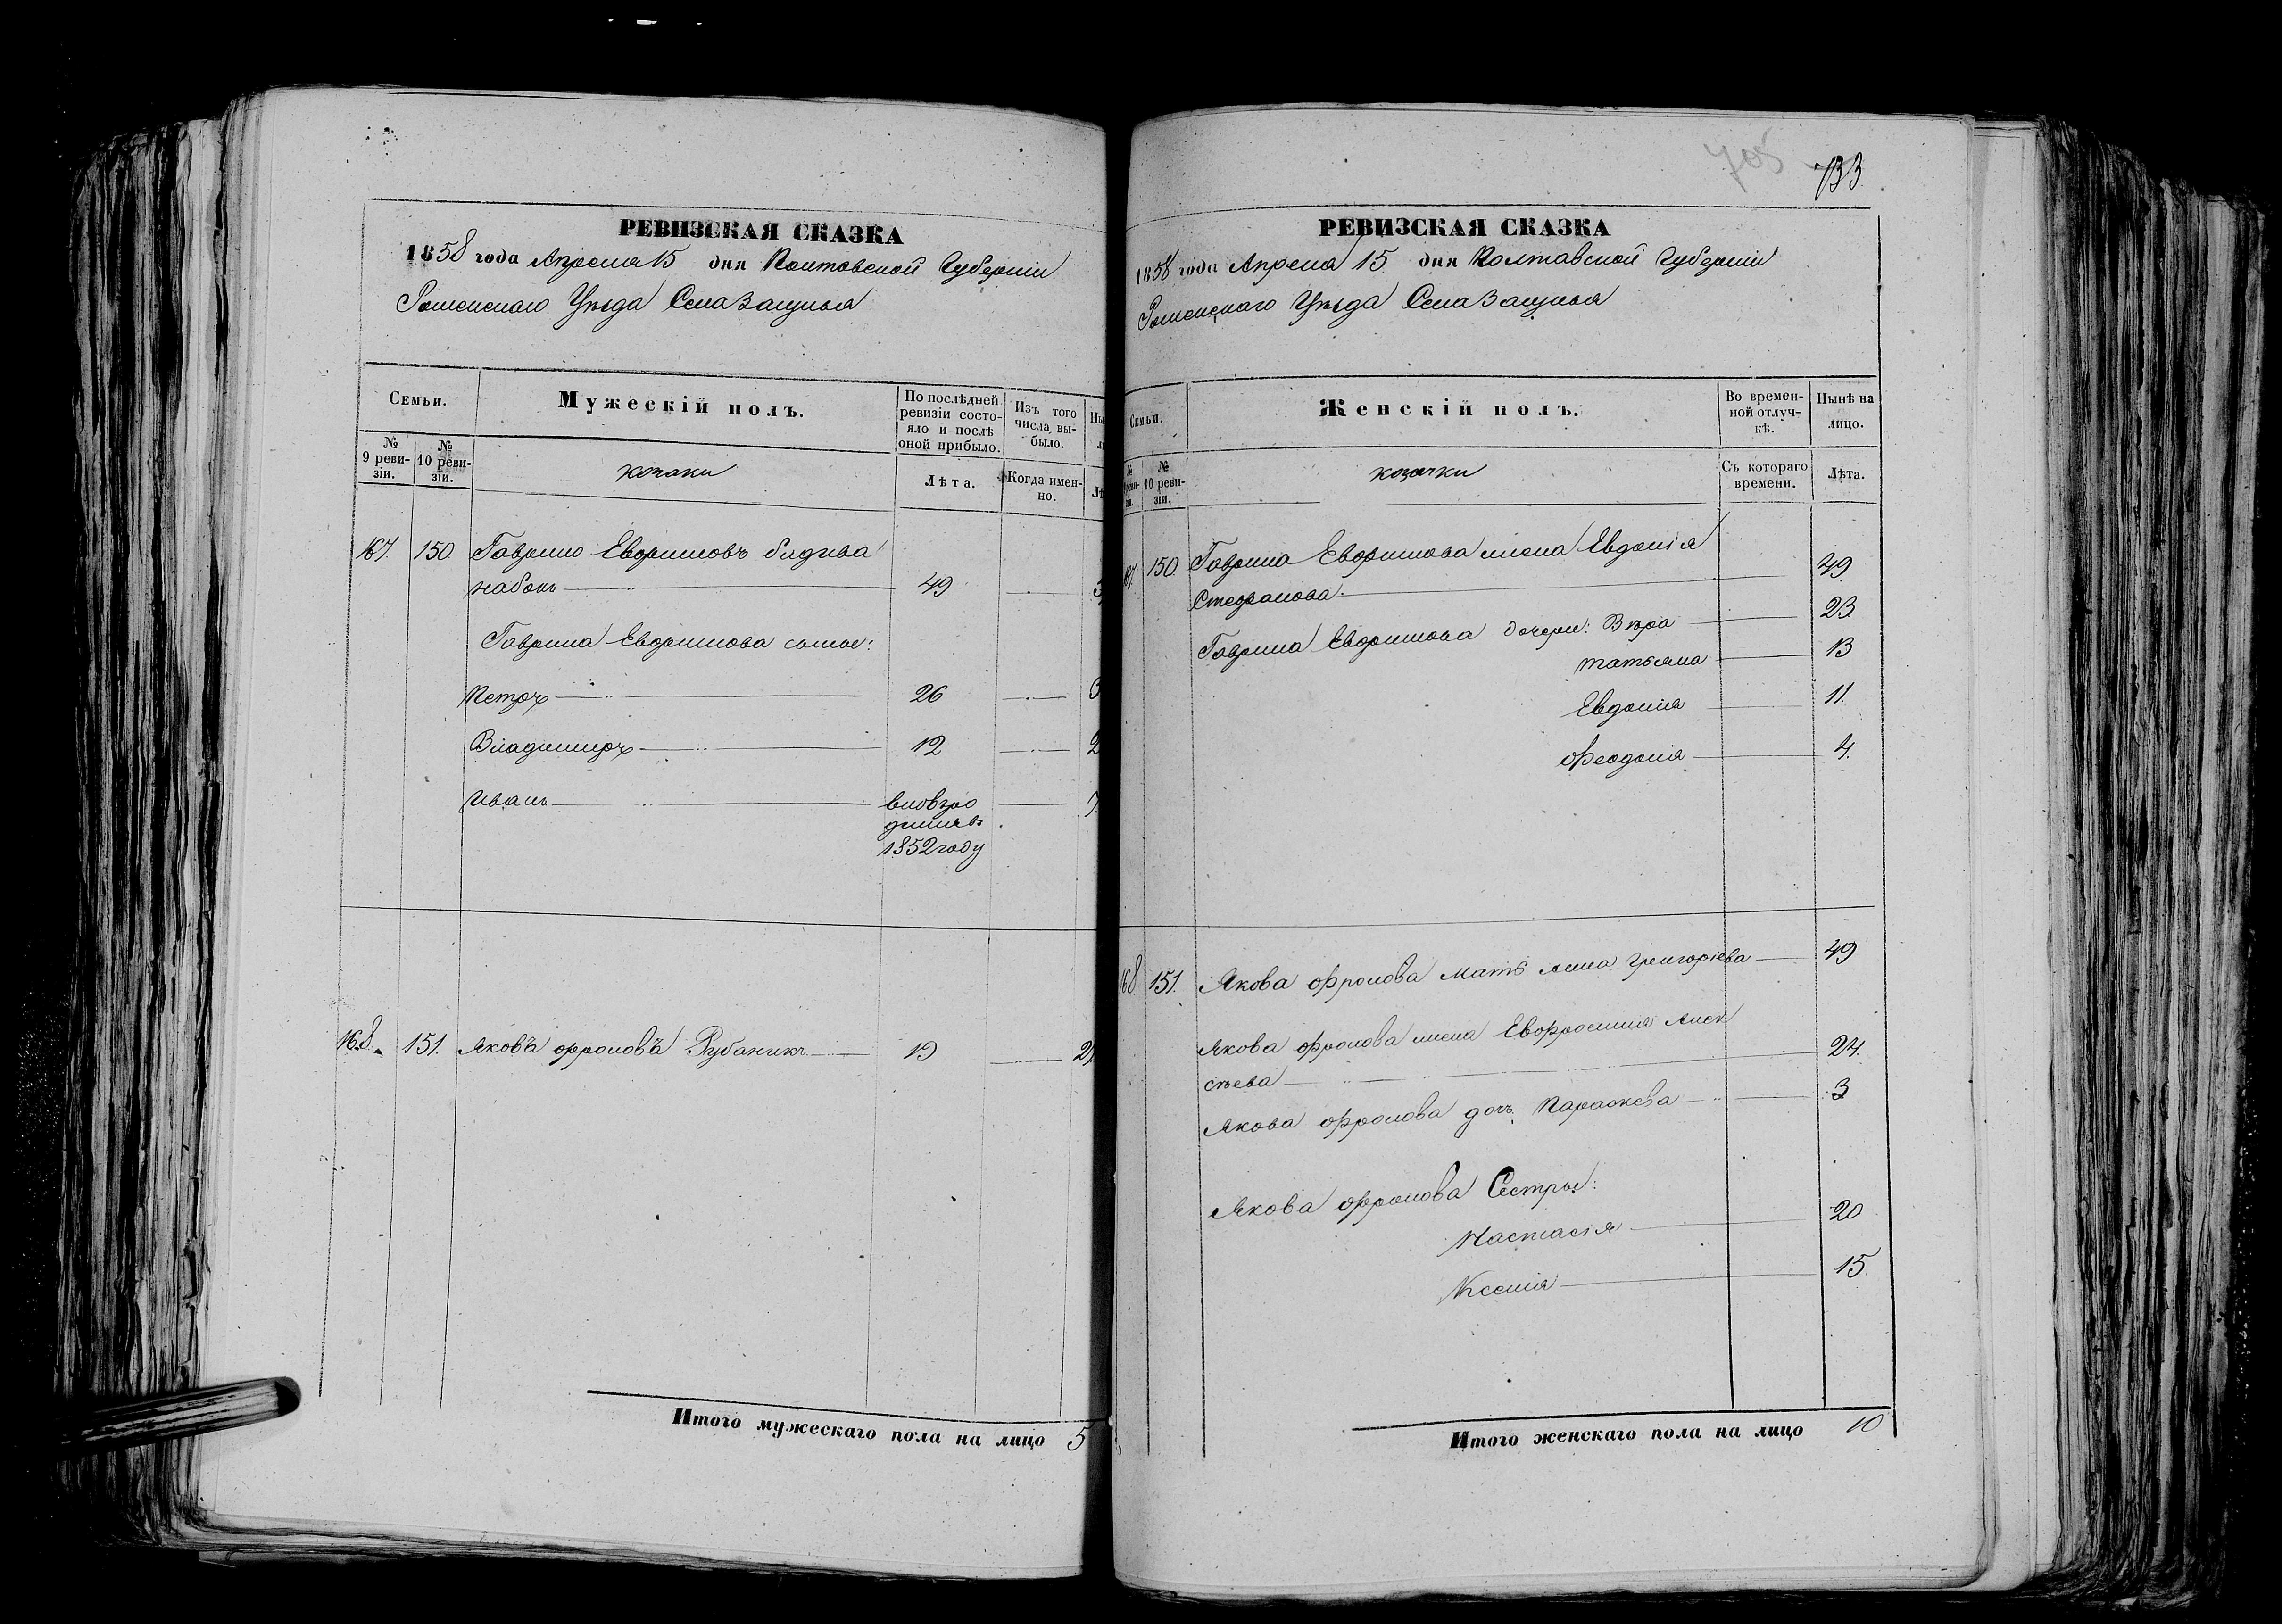 РЕВИЗСКАЯ СКАЗКА
1858 года Апреля 15 дня Полтавской Губерніи
Роменскаго Уѣзда Села Зацныя
Семьи.
Мужескій полъ.
По послѣдней ревизіи состояло и послѣ оной прибыло.
Изъ того числа выбыло.
№ 9 ревизіи.
№ 10 ревизіи.
козаки
Лѣта.
Когда именно.
167. 150 Гаврило Евфимовъ
набокъ 49
Гаврила Евфимова сыновья:
Петръ 26
Владимиръ 12
Иванъ вновь родился въ 1852 году
168. 151. Яковъ Фроловъ Рубаникъ 19
Итого мужескаго пола на лицо 5
705
733
РЕВИЗСКАЯ СКАЗКА
1858 года Апреля 15 дня Полтавской Губерніи
Роменскаго Уѣзда Села
Семьи.
Женскій полъ.
Во временной отлучкѣ.
Нынѣ на лицо.
№ 10 ревизіи.
козачки
Съ котораго времени.
Лѣта.
150. Гаврила Евфимова жена Евдокія
Стефанова 49
Гаврила Евфимова дочери: Вѣра 23
татьяна 13
Евдокія 11
Феодосія 4.
168 151. Якова Фролова мать Анна Григоріева 49
Якова Фролова жена Евфросинія Алек
сѣева 24.
Якова Фролова дочь Параскева 3
Якова Фролова Сестры:
Настасія 20
Ксенія 15.
Итого женскаго пола на лицо 10